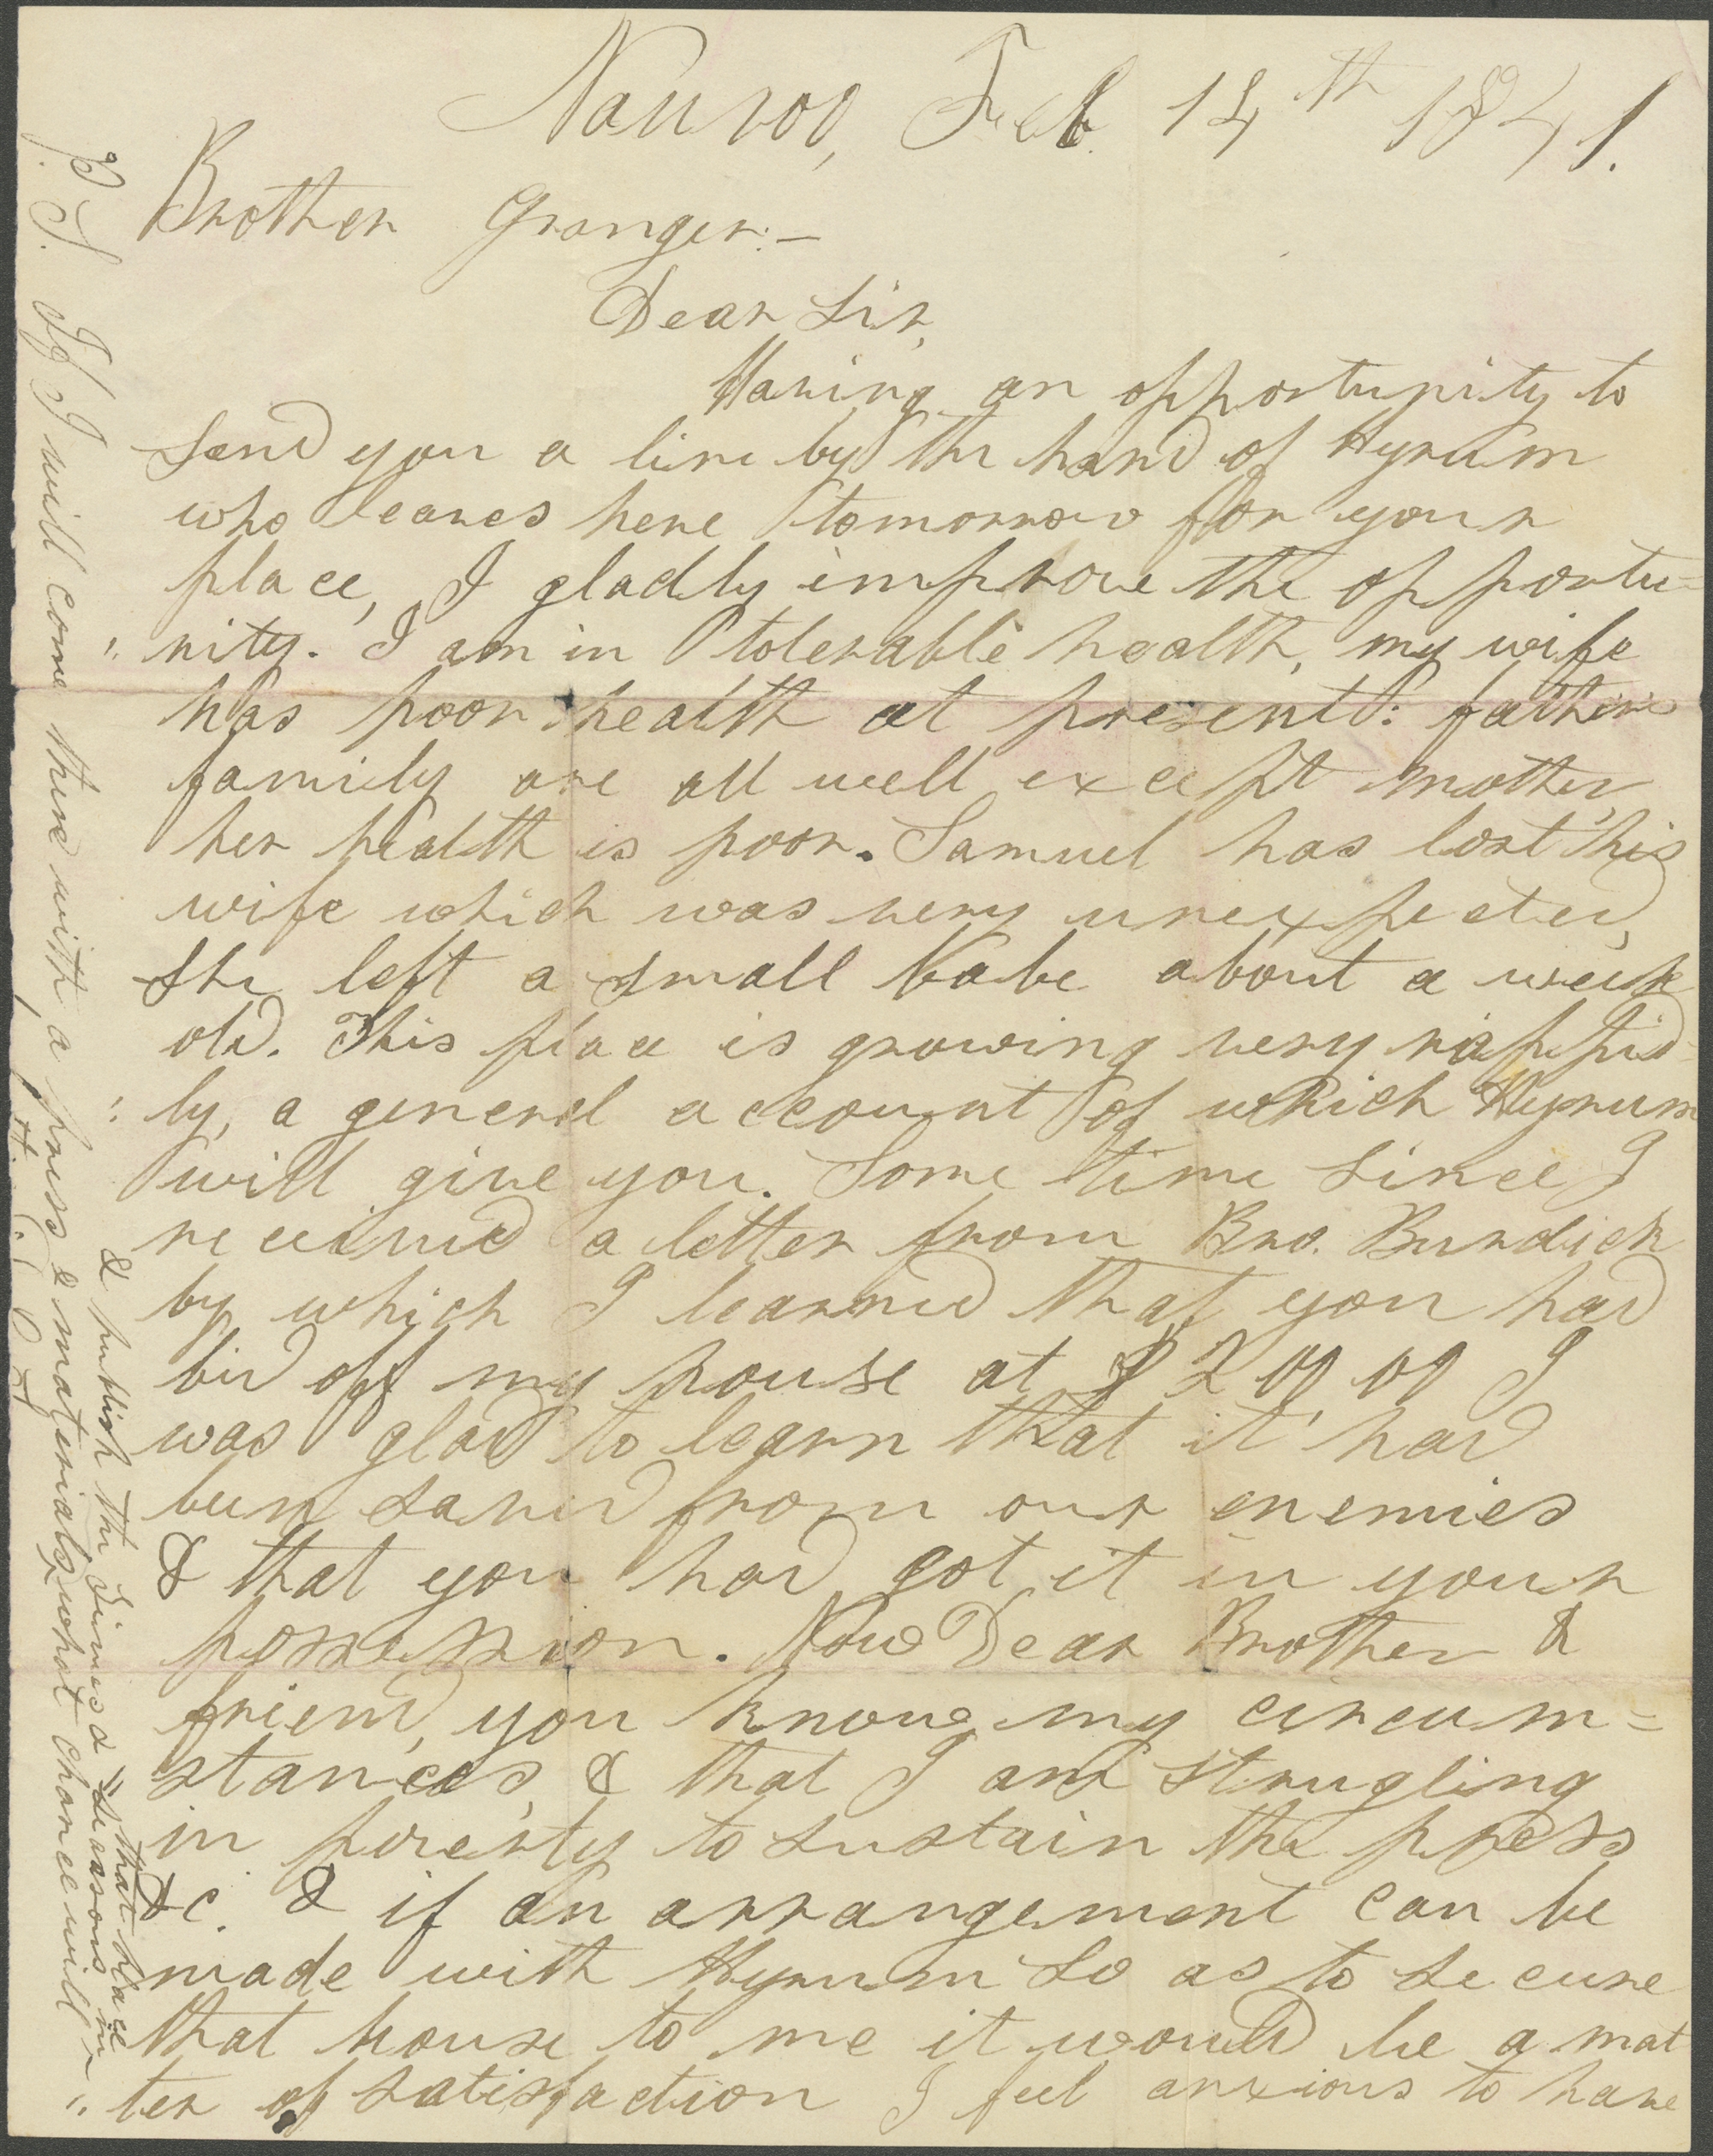 Nauvoo, Feb. 14th 1841.
Brother Granger:—
Dear Sir,
Having an opportunity to
send you a line by the hand of Hyrum
who leaves here tomorrow for your
place, I gladly improve the opportu=
"nity. I am in tolerable health, my wife
has poor health at present: father's
family are all well except mother,
her health is poor. Samuel has lost his
wife which was very unexpected,
she left a small babe about a week
old. This place is growing very rappid=
"ly, a general account of which Hyrum
will give you. Some time since I
received a letter from Bro. Burdick
by which I learned that you had
bid off my house at $200.00 I
was glad to learn that it had
been saved from our enemies
& that you had got it in your
possession. Now Dear Brother &
friend, you know my circum=
stances, & that I am strugling
in poverty to sustain the press
&c. & if an arrangement can be
made with Hyrum so as to secure
that house to me it would be a mat
"ter of satisfaction I feel anxious to have
P. S. If I will come there with a press & materials, what chance will
& publish the Times & Seasons in
that place